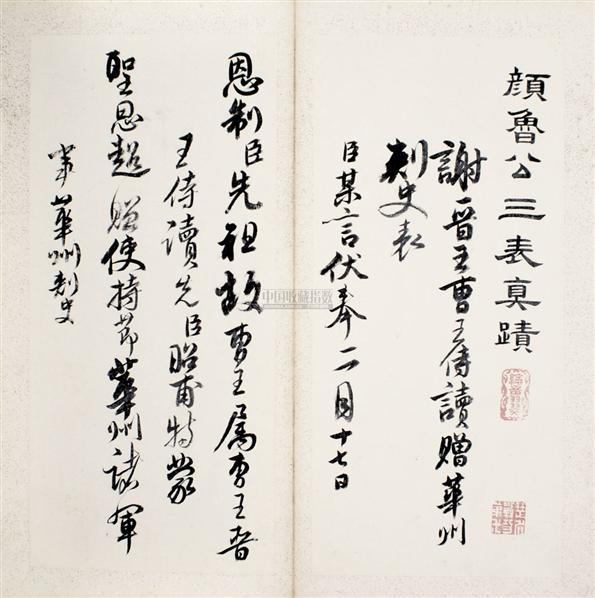 顏魯公三表真蹟
謝晉王曹王侍讀贈華州
刺史表
臣某言伏奉二月十七日
恩制臣先祖故曹王屬曹王晉
王侍讀先臣昭甫特蒙
聖恩超贈使持節華州諸軍
事華州刺史
中国收藏指数